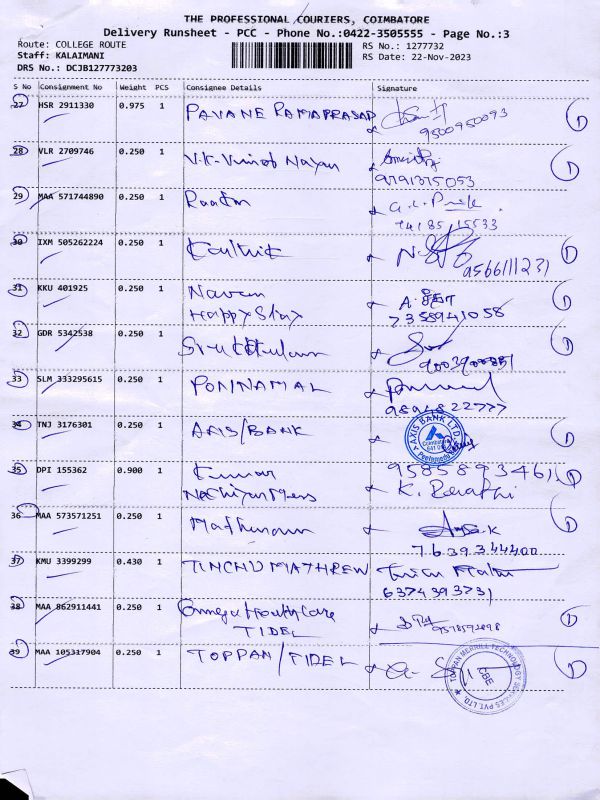 THE PROFESSIONAL COURIERS, COIMBATORE
Delivery Runsheet - PCC - Phone No.:0422-3505555 - Page No.:3
Route: COLLEGE ROUTE RS No.: 1277732
Staff: KALAIMANI RS Date: 22-Nov-2023
DRS No.: DCJB127773203
S No Consignment No Weight PCS Consignee Details Signature
27 HSR 2911330 0.975 1 PAVANE RAMAPRASAD
9500950093
28 VLR 2709746 0.250 1 V.K. Vinoth Nayan
9791375053
29 MAA 571744890 0.250 1
30 IXM 505262224 0.250 1 Karthik
9566111231
31 KKU 401925 0.250 1 Naven
Happy Stay
7358941058
32 GDR 5342538 0.250 1
33 SLM 333295615 0.250 1 PONNAMAL
9894822777
34 TNJ 3176301 0.250 1 AXIS/BANK AXIS BANK LTD
35 DPI 155362 0.900 1 Kumar
K.
36 MAA 573571251 0.250 1
7639344400
37 KMU 3399299 0.430 1 TINCHU MATHREW
6374393731
38 MAA 862911441 0.250 1 Omega Health Care
TIDEL
39 MAA 105317904 0.250 1 TOPPAN/TIDEL
TOPPAN MERRILL TECHNOLOGY SERVICES PVT. LTD.
CBE